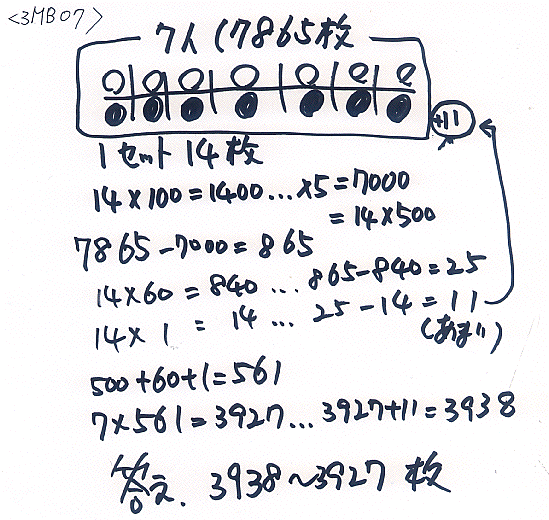 <3MB07>
7人(7865枚
+11
1セット14枚
14×100=1400…×5=7000
=14×500
7865-7000=865
14×60=840…865-840=25
14×1=14…25-14=11
(あまり)
500+60+1=561
7×561=3927…3927+11=3938
答え. 3938〜3927枚